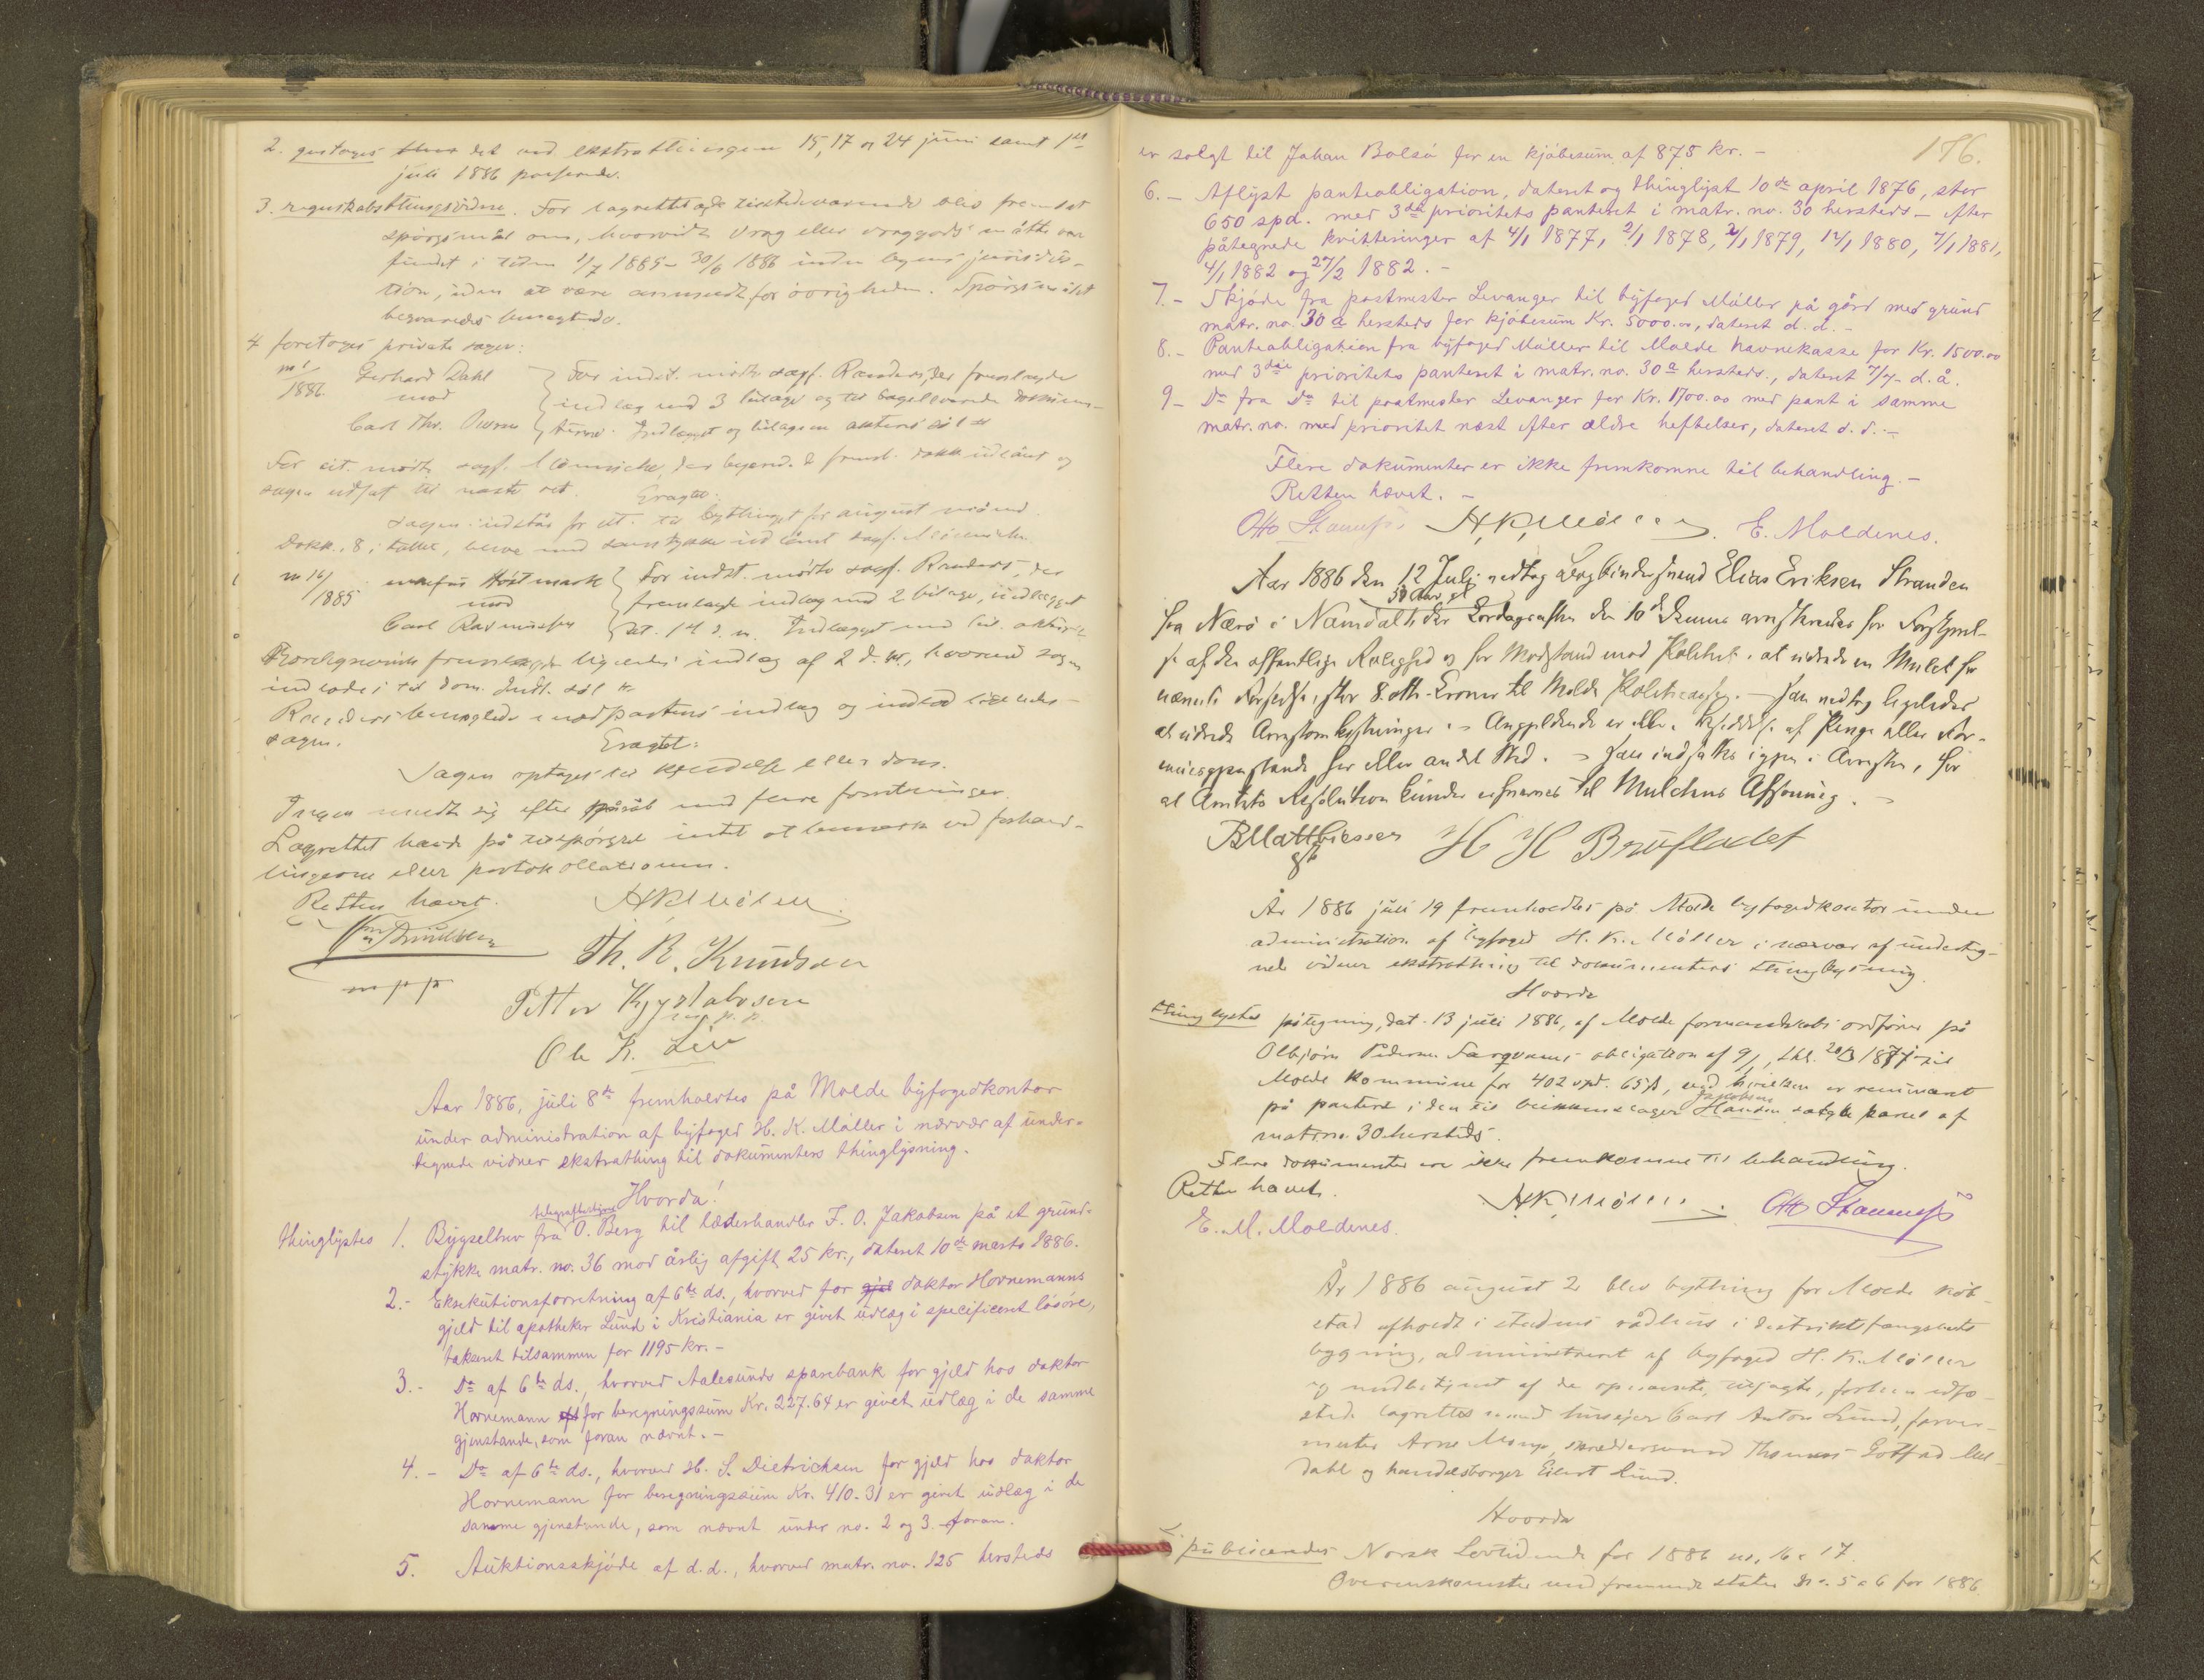 2. gentoges det ved ekstrathingene 15, 17 og 24 juni samt 1ste
juli 1886 passerede.
3. For lagrettet og de tilstedeværende blev fremsat
spörgsmål om, hvorvidt vrag eller vraggods måtte være
fundet i tiden 1/7 1885 - 30/6 1886 inden byens jurisdik-
tion, uden at være anmeldt for övrigheden. Spörgsmålet
besvaredes benægtende.
4 foretoges private sager:
no 1/1886. Gerhard Dahl
mod
Carl Thr. 
For indst. mödte sagf. Randers, der fremlagde
indlæg med 3 bilage og tilbageleverede dokumen-
terne. Indlægget og bilagene
For cit. mödte sagf. der begjærede dokk. udlånt og
sagen udsat til næste ret. Eragtet:
Sagen udstår for cit. til bythinget for august måned.
Dokk., 8 i tallet, bleve med samtykke udlånt sagf.
no 16/1885 Höstmark
mod
Carl Rasmussen
For indst. mödte sagf. Randers, der
fremlagde indlæg med 2 bilage, indlægget
dat. 14 d. m. Indlægget med bil.
fremlagde indlæg af 2 d. m., hvorved sagen
indlodes til dom. Indl.
Randers benægtede modpartens indlæg og indlod ligeledes
sagen. Eragtet:
Sagen optages til kjendelse eller dom.
Ingen meldte sig efter påråb med flere forretninger.
Lagrettet havde på tilspörgsel intet at bemærke ved forhand-
lingerne eller protokollationen.
Retten hævet. H. K. Möller
Th. R. Knudsen
m p p
Petter Kystabosen
m. p. p.
Ole K. Lie
Aar 1886, juli 8de fremholdtes på Molde byfogedkontor
under administration af byfoged H. K. Möller i nærvær af under-
tegnede vidner ekstrathing til dokumenters thinglysning.
Hvorda!
thinglystes 1. Bygselbrev fra O. Berg til læderhandler F. O. Jakobsen på et grund-
stykke matr. no. 36 mod årlig afgift 25 kr., dateret 10de marts 1886.
2.- Eksekutionsforretning af 6te ds., hvorved for gjel doktor Hornemanns
gjeld til apotheker Lund i Kristiania er givet udlæg i specificeret lösöre,
takseret tilsammen for 1195 kr. -
3.- Do af 6te ds., hvorved Aalesunds sparebank for gjeld hos doktor
Hornemann for beregningssum Kr. 227.64 er givet udlæg i de samme
gjenstande, som foran nævnt. -
4. - Do af 6te ds., hvorved H. S. Dietrichsen for gjeld hos doktor
Hornemann for beregningssum Kr. 410.31 er givet udlæg i de
samme gjenstande, som nævnt under no. 2 og 3 foran.
5. Auktionsskjöde af d. d., hvorved matr. no. 125 hersteds
176.
er solgt til Johan Bolsö for en kjöbesum af 875 kr. -
6. - Aflyst panteobligation, dateret og thinglyst 10de april 1876, stor
650 spd. med 3die prioritets panteret i matr. no. 30 hersteds - efter
påtegnede kvitteringer af 4/1 1877, 2/1 1878, 2/1 1879, 12/1 1880, 7/1 1881,
4/1 1882 og 27/2 1882. -
7. - Skjöde fra postmester Levanger til byfoged Möller på gård med grund
matr. no. 30a hersteds for kjöbesum Kr. 5000.00, dateret d. d. -
8. - Panteobligation fra byfoged Möller til Molde havnekasse for Kr. 1500.00
med 3die prioritets panteret i matr. no. 30a hersteds., dateret 7/7 d. å.
9 - Do fra Do til postmester Levanger for Kr. 1700.00 med pant i samme
matr. no. med prioritet næst efter ældre heftelser, dateret d. d. -
Flere dokumenter er ikke fremkomne til behandling. -
Retten hævet. -
H. K. Möller. E. Moldenes.
Aar 1886 den 12 Juli nedtog Elias Eriksen Stranden
50 Aar gl
fra Nærö i Namdal, der Lördagaften den 10de Dennes arresteredes for
af den offentlige Rolighed og for Modstand mod Politiet, at udrede en Mulct for
nævnte Forseelse, stor 8 otte Kroner til Molde Politikasse. - Han vedtog ligeledes
at udrede Arrestomkostninger. - Angjeldende er ikke i Besiddelse af Penge eller
her eller andet Sted. - Han indsattes igjen i Arresten, for
at Amtets Resolution kunde erhverves til Mulctens Afsoning. -
B Matthiessen H H Brusladet
År 1886 juli 19 fremholdtes på Molde byfogedkontor under
administration af byfoged H. K. Möller i nærvær af underteg-
nede vidner ekstrathing til dokumenters thinglysning.
Hvorda
thinglystes påtegning, dat. 13 juli 1886, af Molde formandskabs ordförer på
Olbjörn Pedersen obligation af 9/1, thl. 20/3 1877 til
Molde kommune for 402 spd. 65 s, ved hvilken er renunceret
på panteret i den til Jakobsen Hansen solgte parcel af
matr. no. 30 hersteds.
Flere dokumenter er ikke fremkomne til behandling.
Retten hævet. H. K. Möller.
E. M. Moldenes.
År 1886 august 2 blev bything for Molde kjöb-
stad afholdt i stadens rådhus i distriktsfængslets
bygning, administreret af byfoged H. K. Möller
og medbetjent af de opnævnte, tilsagte, forhen edfæ-
stede lagrettesmænd husejer Carl Anton Lund, farver-
mester Arne skræddersvend Thomas Gotfred
dahl og handelsborger Eilert Lund.
Hvorda
1. publiceredes Norsk Lovtidende for 1886 no. 16 & 17.
Overenskomster med fremmede stater No. 5 & 6 for 1886.